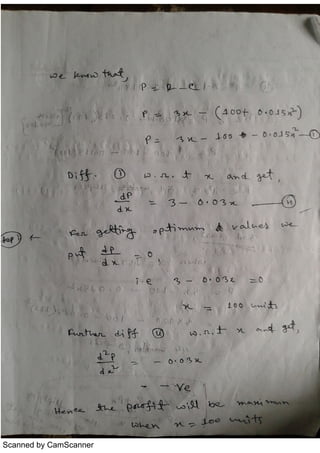 we know that,
P = R - C
P = 3x - (100 + 0.015x²)
P = 3x - 100 - 0.015x² — ①
Diff. ① w.r.t x and get,
dP/dx = 3 - 0.03x — ⑪
For getting optimum values we
put dP/dx = 0,
i.e 3 - 0.03x = 0
x = 100 units
Further diff ⑪ w.r.t x and get,
d²P/dx² = - 0.03x
= -ve
Hence the profit will be maximum
when x = 100 units
Scanned by CamScanner